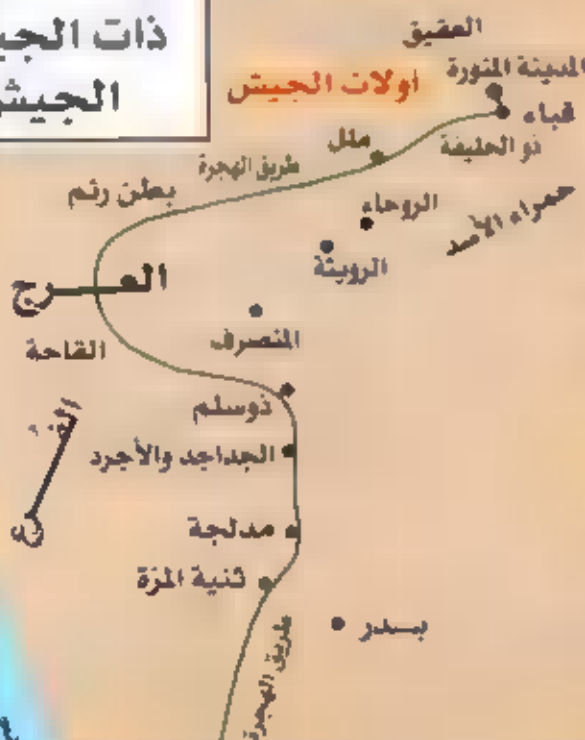 ذات الجيـ
الجيش
العقيق
المدينة المنورة
اولات الجيش
قباء
ذو الحليفة
ملل
طريق الهجرة
بطن رئم
حمراء الأسد
الروحاء
الرويثة
العـــرج
المنصرف
القاحة
ذوسلم
الجداجد والأجرد
مدلجة
ثنية المرة
بــدر
طريق الهجرة